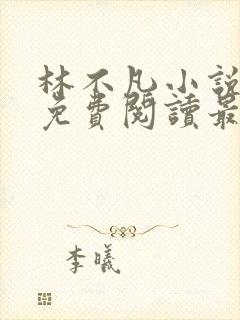 林不凡小說
免費閱讀最
李曦